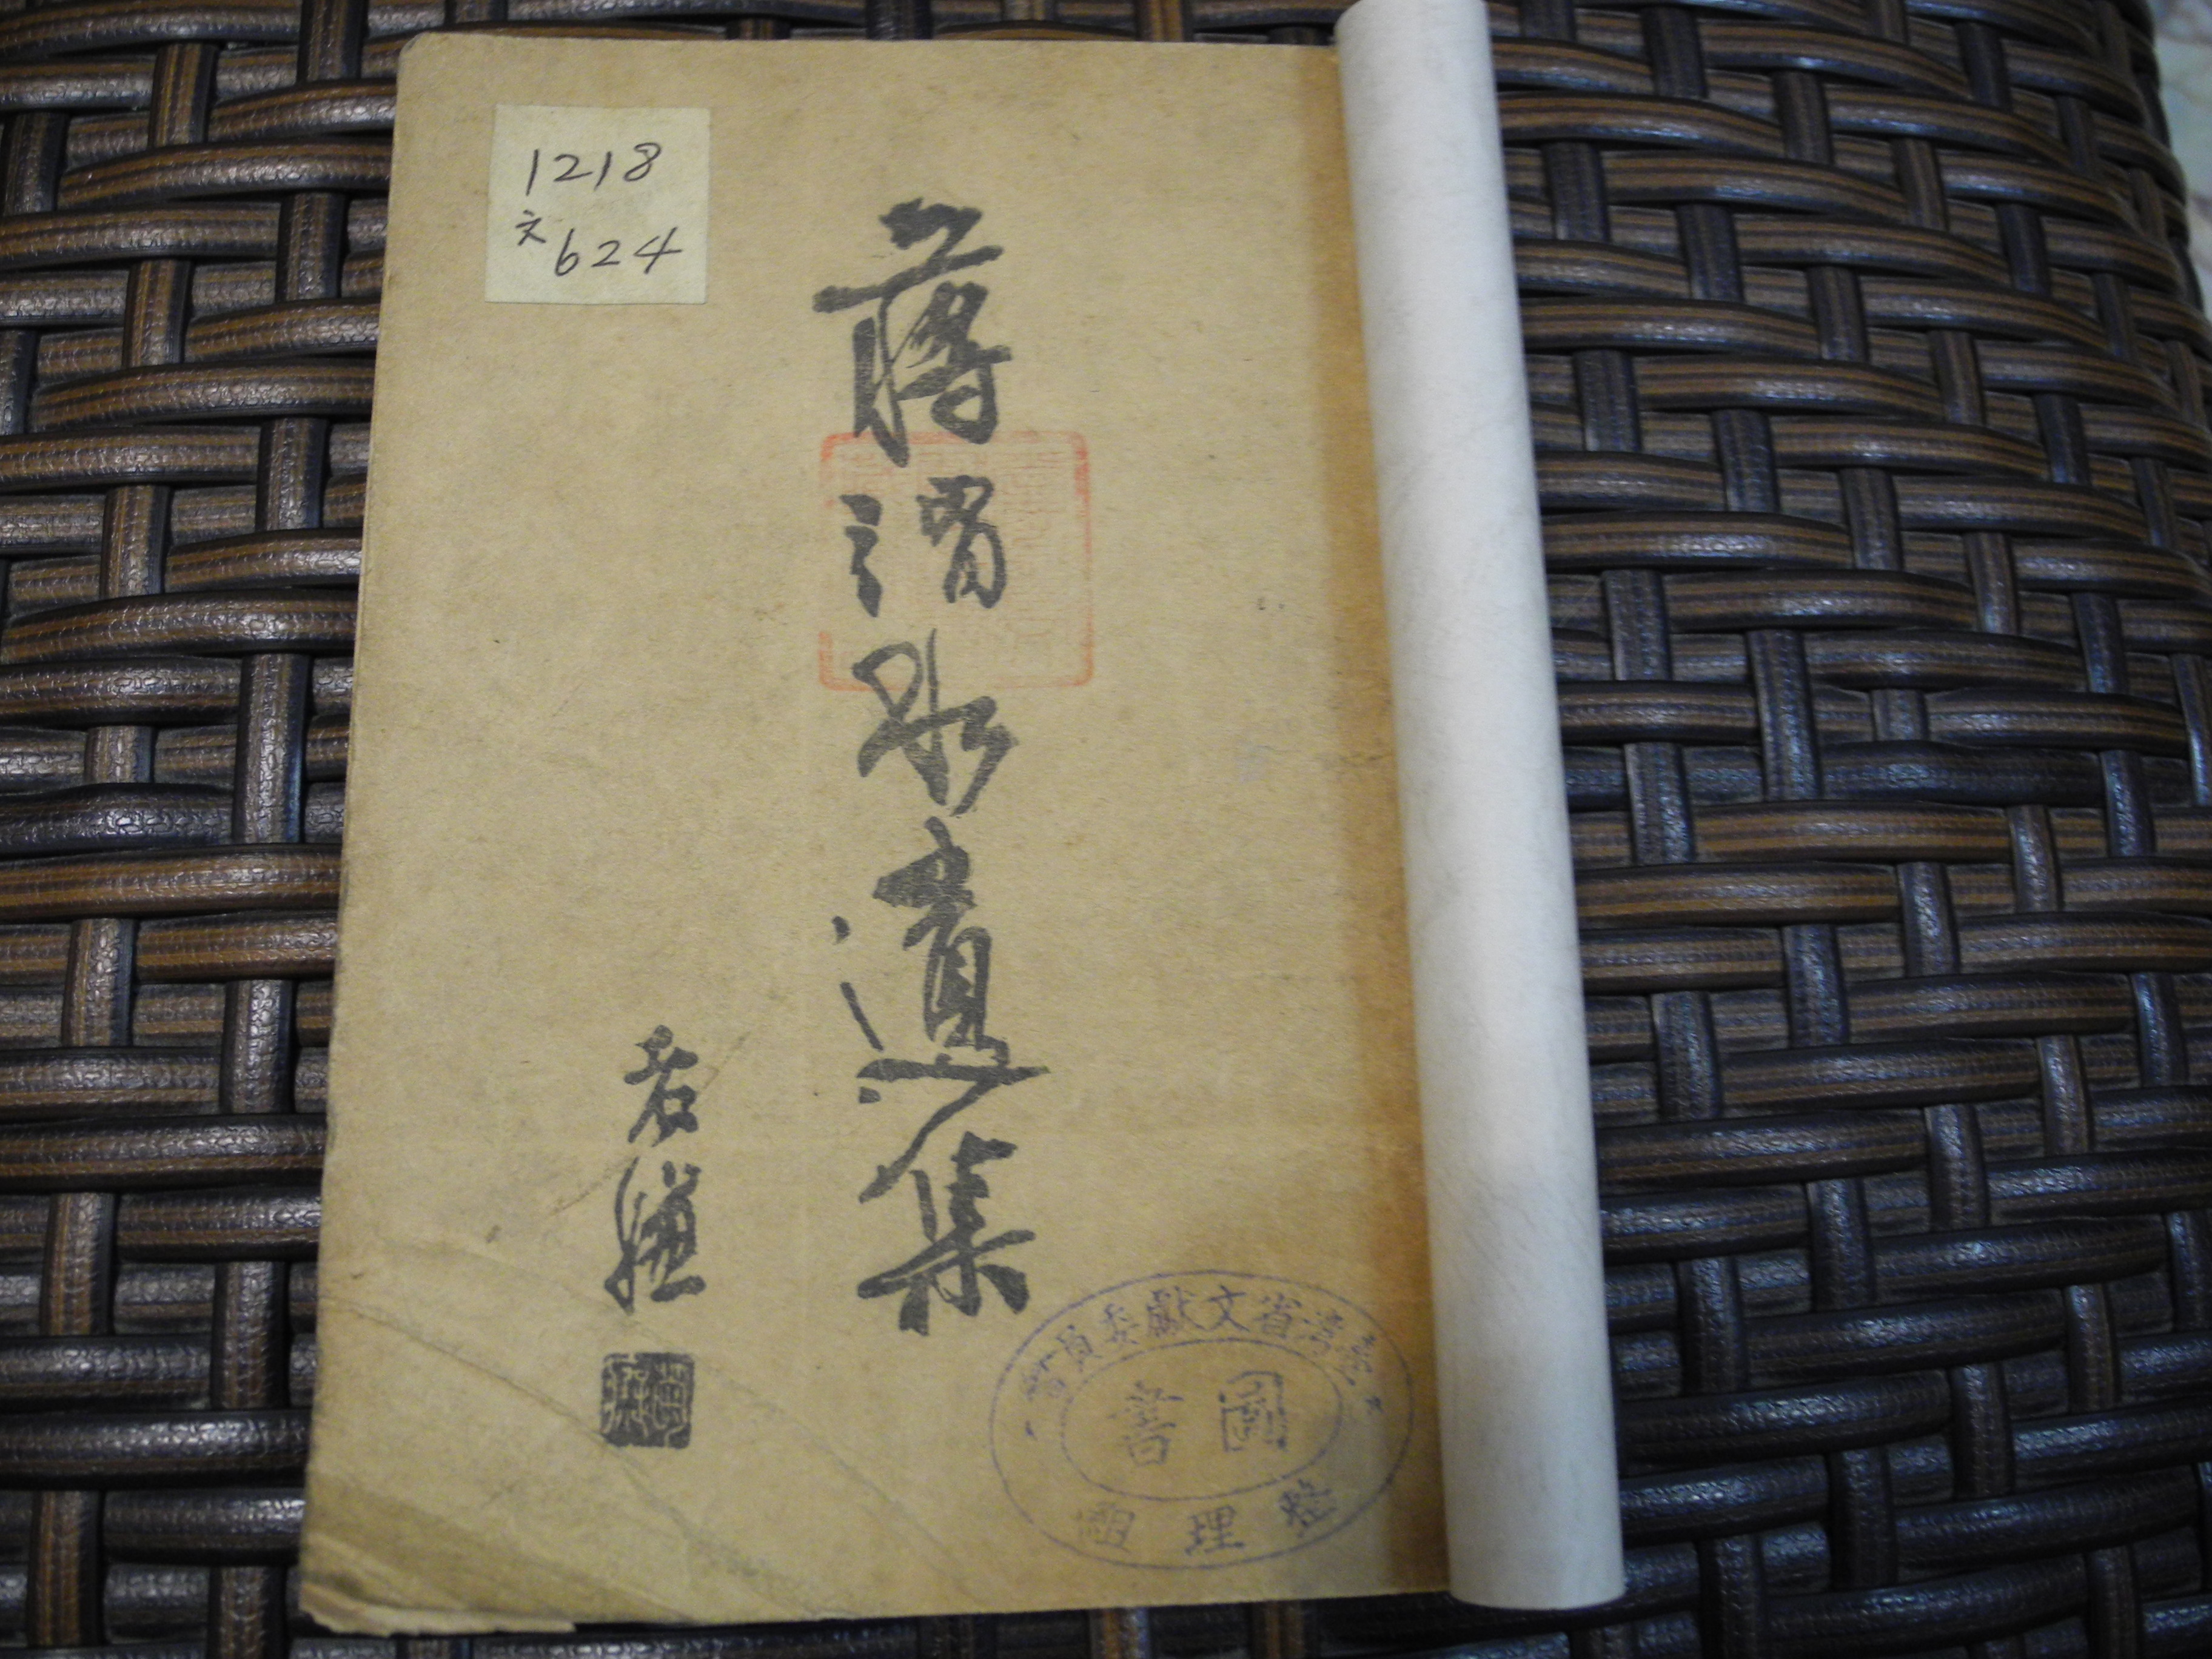 1218
文624
蔣渭水遺集
君謙
臺灣省文獻委員會
圖書
整理